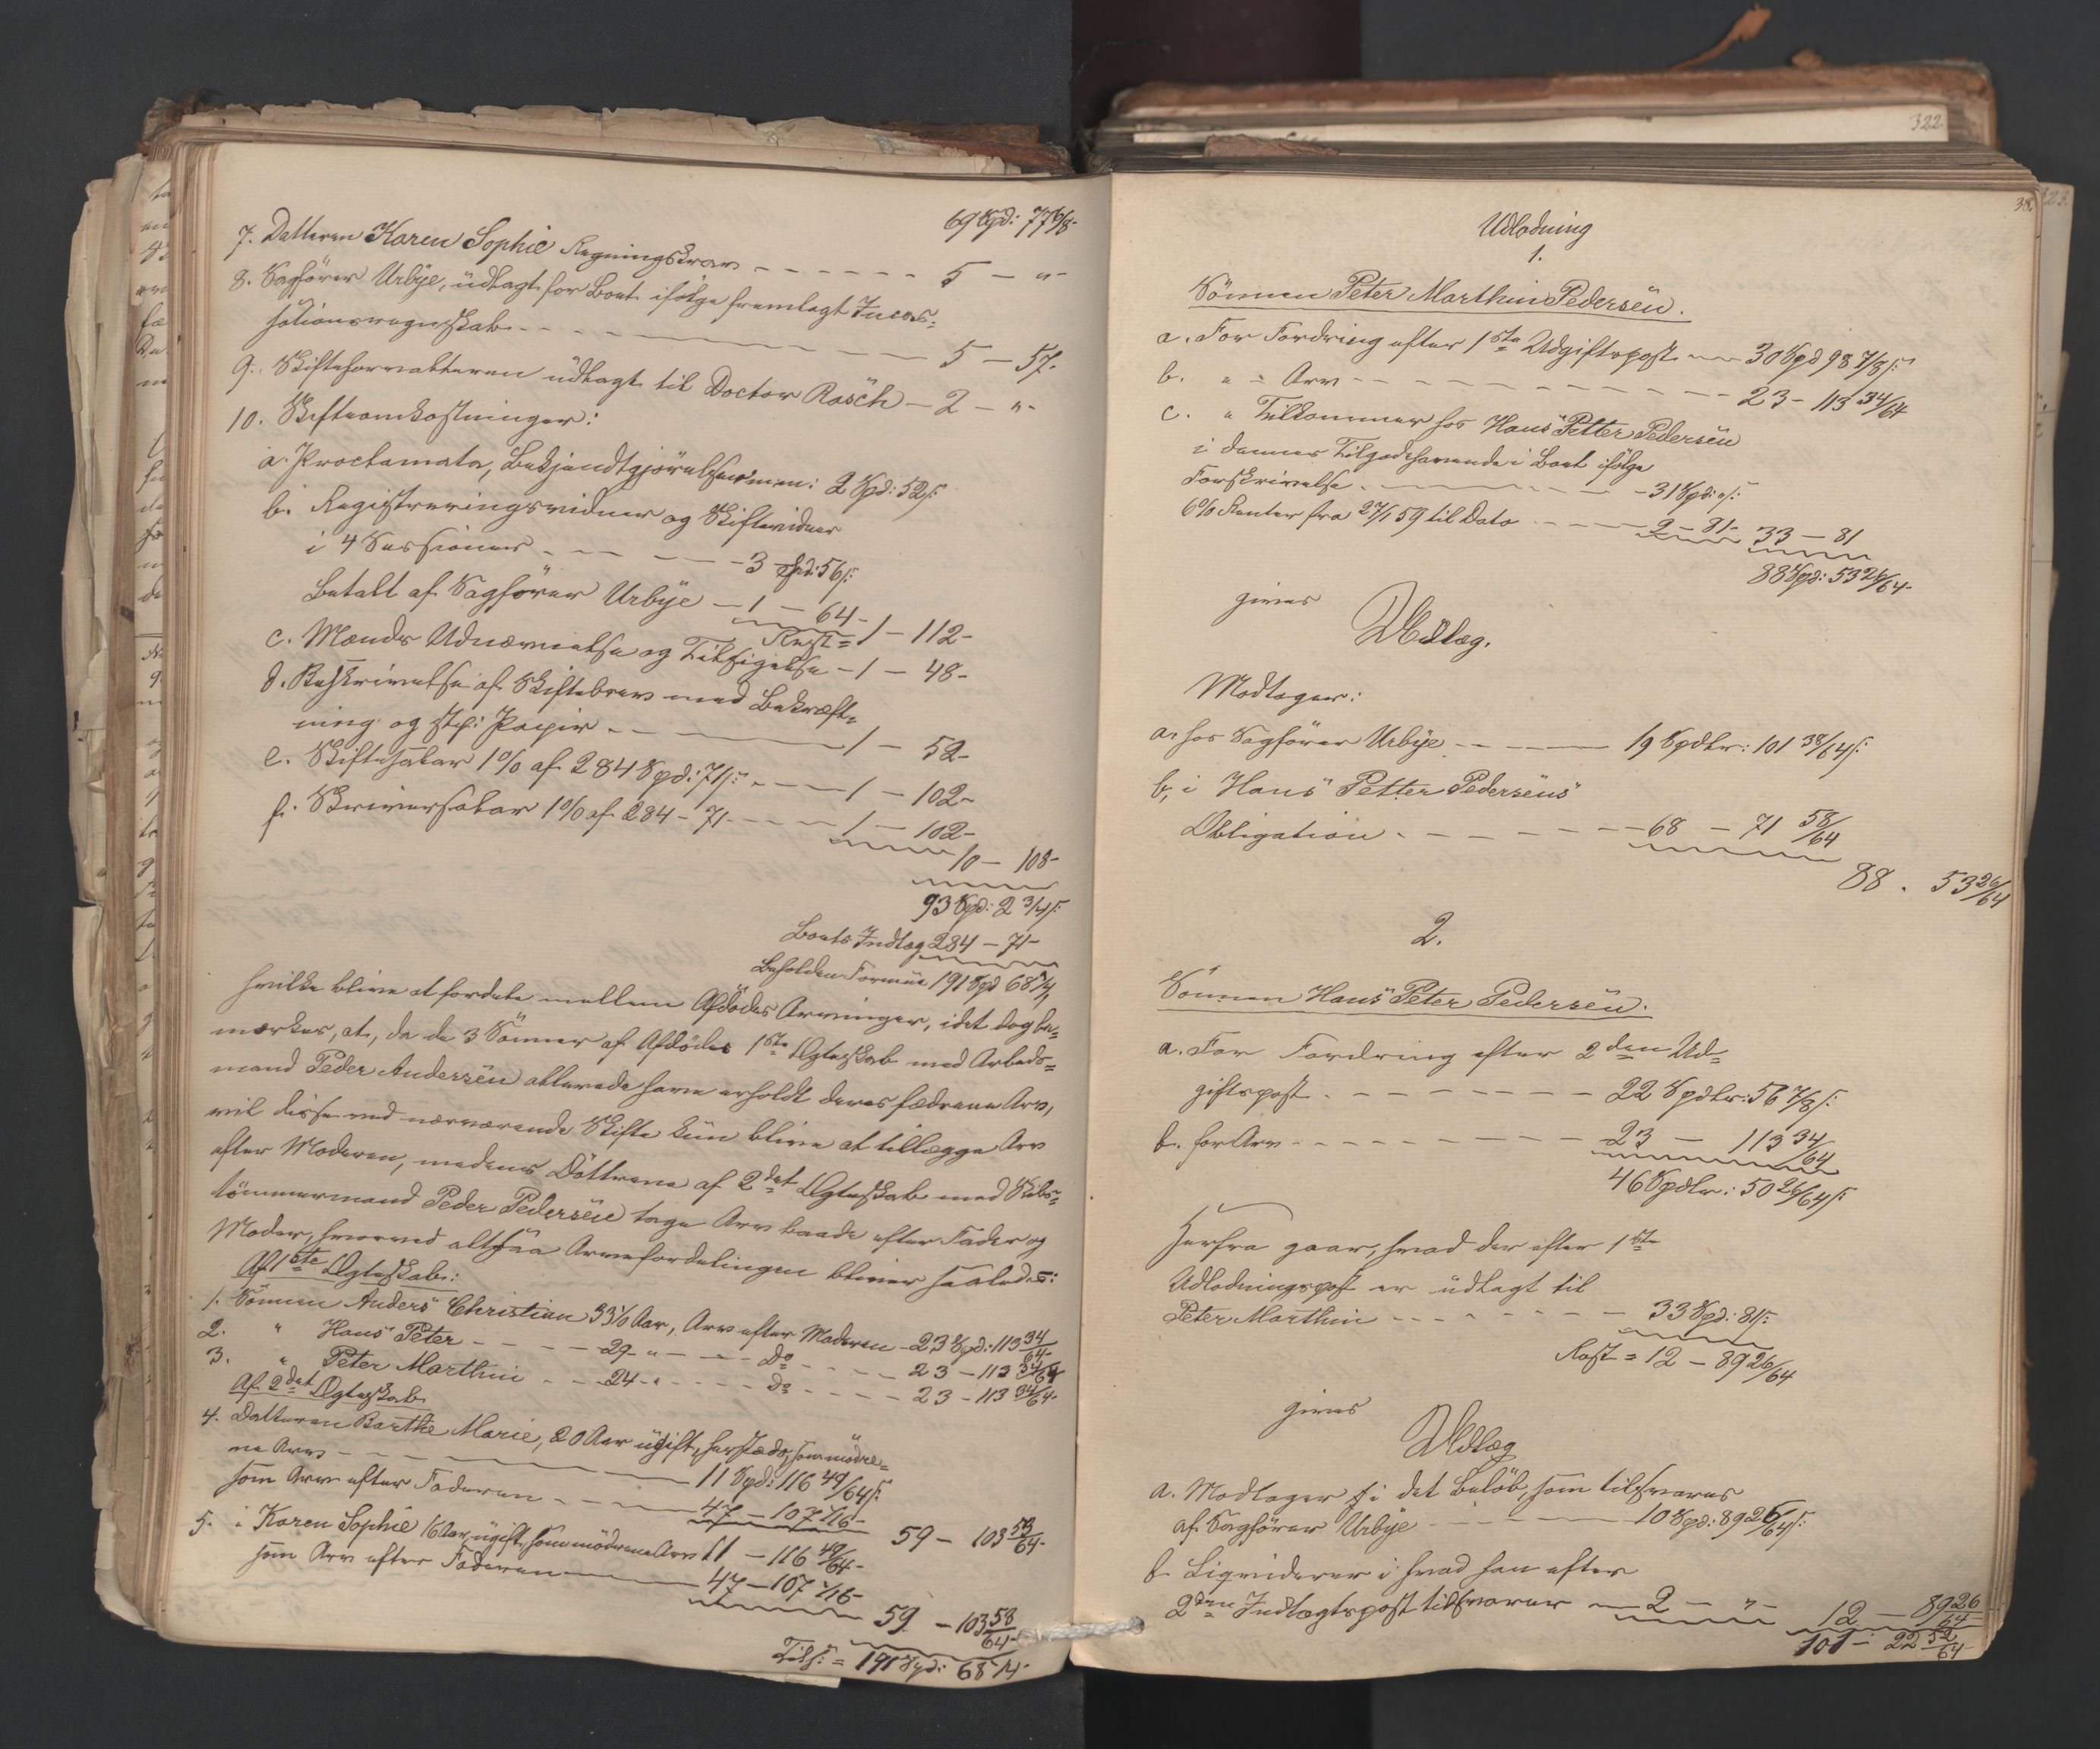 69 Spd: 77 6/8-
7. Datteren Karen Sophie Regningskrav - - - - - - 5 — "-
8. Sagfører Urbÿe, üdlagt for Boet ifølge fremlagt Incas=
sationsregnskab - - - 5 — 57.
9. Skifteforvalteren üdlagt til Doctor Rasch — 2 — "-
10. Skifteomkostninger:
a. Proclamata, Bekjendtgjørelse 2 Spd: 52 ſ:
b. Registreringsvidner og Skiftevidner
i 4 Sessioner - - - 3 Spd: 56 ſ:
Betalt af Sagfører Urbÿe — 1 — 64-
Rest = 1 — 112-
c. Mænds Udnævnelse og Tilsigelse — 1 — 48-
d. Beskrivelse af Skiftebrev med Bekræft=
ning og stp: Papir - - - 1 — 52-
e. Skiftesalær 1 % af 284 Spd: 71 ſ: - - 1 — 102-
f. Skriversalær 1 % af 284 - 71 - - - 1 — 102-
10 — 108-
93 Spd: 2 3/4 ſ:
Boets Indtæg 284 — 71-
Beholden Formüe 191 Spd 68 1/4
hvilke blive at fordele mellem Afdødes Arvinger, idet dog be=
mærkes, at, da de 3 Sønner af Afdødes 1ste Ægteskab med Arbeids=
mand Peder Andersen allerede have erholdt deres fædrene Arv,
vil disse ved nærværende Skifte kün blive at tillægge Arv
efter Moderen, medens Døttrene af 2det Ægteskab med Skibs=
tømmermand Peder Pedersen tage Arv baade efter Fader og
Moder, hvorved altsaa Arvefordelingen bliver saaledes:
Af 1ste Ægteskab:
1. Sønnen Anders Christian 33 1/2 Aar, Arv efter Moderen - 23 Spd: 113 34/64-
2. " Hans Peter - - - 29 - " - - - Do - - - 23 — 113 34/64
3. " Peter Marthin - - 24 - " - - - Do - - - 23 — 113 34/64-
Af 2det Ægteskab
4. Datteren Barthe Marie, 20 Aar ügift, herstæds, som mødre=
ne Arv - - - 11 Spd: 116 49/64 ſ:
som Arv efter Faderen - - - 47 — 107 1/16-
59 — 103 53/64-
5. " Karen Sophie 16 Aar, ügift, som mødrene Arv 11 — 116 49/64-
som Arv efter Faderen — 47 — 107 1/16-
59 — 103 53/64-
Tils: = 191 Spd: 68 1/4-
322
323
Udlodning
1.
Sønnen Peter Marthin Pedersen.
a. For Fordring efter 1ste Udgiftspost — 30 Spd 98 7/8 ſ:
b. " - Arv - - - 23 - 113 34/64
c. " Tilkommer hos Hans Petter Pedersen
i dennes Tilgodehavende i Boet ifølge
Forskrivelse - - - 31 Spd: " ſ:
6 % Renter fra 27/1 59 til Dato - - - 2 - 81- 33 — 81
88 Spd: 53 26/64-
gives
Udlæg.
Modtager:
a. hos Sagfører Urbÿe - - - 19 Spdlr: 101 38/64 ſ:
b. i Hans Petter Pedersens
Obligation - - - 68 — 71 58/64
88 . 53 26/64
2.
Sønnen Hans Peter Pedersen.
a. For Fordring efter 2den Ud=
giftspost - - - 22 Spdlr: 56 7/8 ſ:
b. for Arv - - - 23 — 113 34/64
46 Spdlr: 50 26/64 ſ:
Herfra gaar, hvad der efter 1ste
Udlodningspost er üdlagt til
Peter Marthin - - - 33 Spd: 81 ſ:
Rest = 12 — 89 26/64
gives
Udlæg
a. Modtager i det Beløb, som tilsvares
af Sagfører Urbÿe - - - 10 Spd: 89 26/64 ſ:
b. Liqviderer i hvad han efter
2den Indtægtspost tilsvarer — 2 — " - 12 — 89 26/64
101 — 22 52/64-